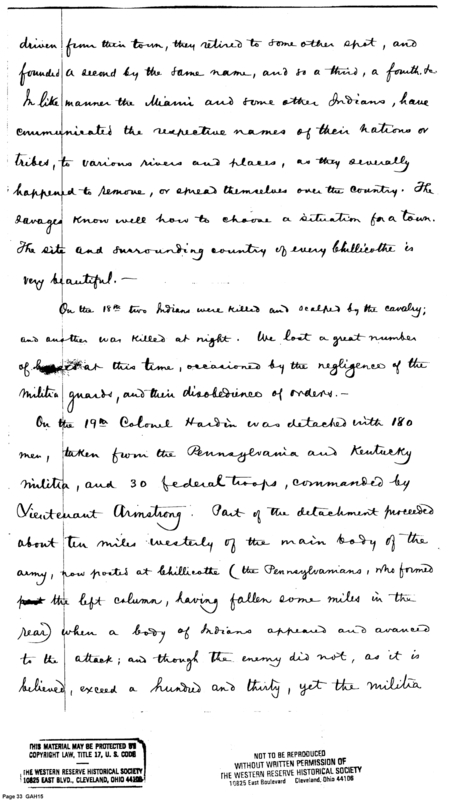 driven from their town, they retired to some other spot, and
founded a second by the same name, and so a third, a fourth, &c
In like manner the Miami and some other Indians, have
communicated the respective names of their nations or
tribes, to various rivers and places, as they severally
happened to remove, or spread themselves over the country. The
savages know well how to choose a situation for a town.
The site and surrounding country of every Chillicothe is
very beautiful. —
On the 18th two Indians were killed and scalped by the cavalry;
and another was killed at night. We lost a great number
of at this time, occasioned by the negligence of the
militia guards, and their disobedience of orders. —
On the 19th Colonel Hardin was detached with 180
men, taken from the Pennsylvania and Kentucky
militia, and 30 federal troops, commanded by
Lieutenant Armstrong. Part of the detachment proceeded
about ten miles westerly of the main body of the
army, now posted at Chillicothe (the Pennsylvanians, who formed
the left column, having fallen some miles in the
rear) when a body of Indians appeared and avanced
to the attack; and though the enemy did not, as it is
believed, exceed a hundred and thirty, yet the militia
THIS MATERIAL MAY BE PROTECTED BY
COPYRIGHT LAW, TITLE 17, U. S. CODE
THE WESTERN RESERVE HISTORICAL SOCIETY
10825 EAST BLVD., CLEVELAND, OHIO 44106
NOT TO BE REPRODUCED
WITHOUT WRITTEN PERMISSION OF
THE WESTERN RESERVE HISTORICAL SOCIETY
10825 East Boulevard Cleveland, Ohio 44106
Page 33 GAH15